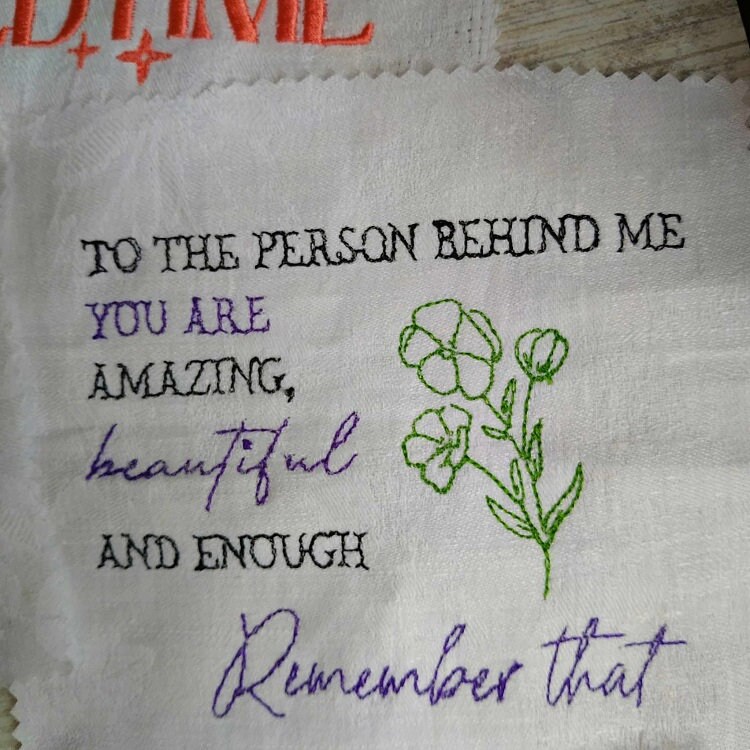 TO THE PERSON BEHIND ME
YOU ARE
AMAZING,
beautiful
AND ENOUGH
Remember that